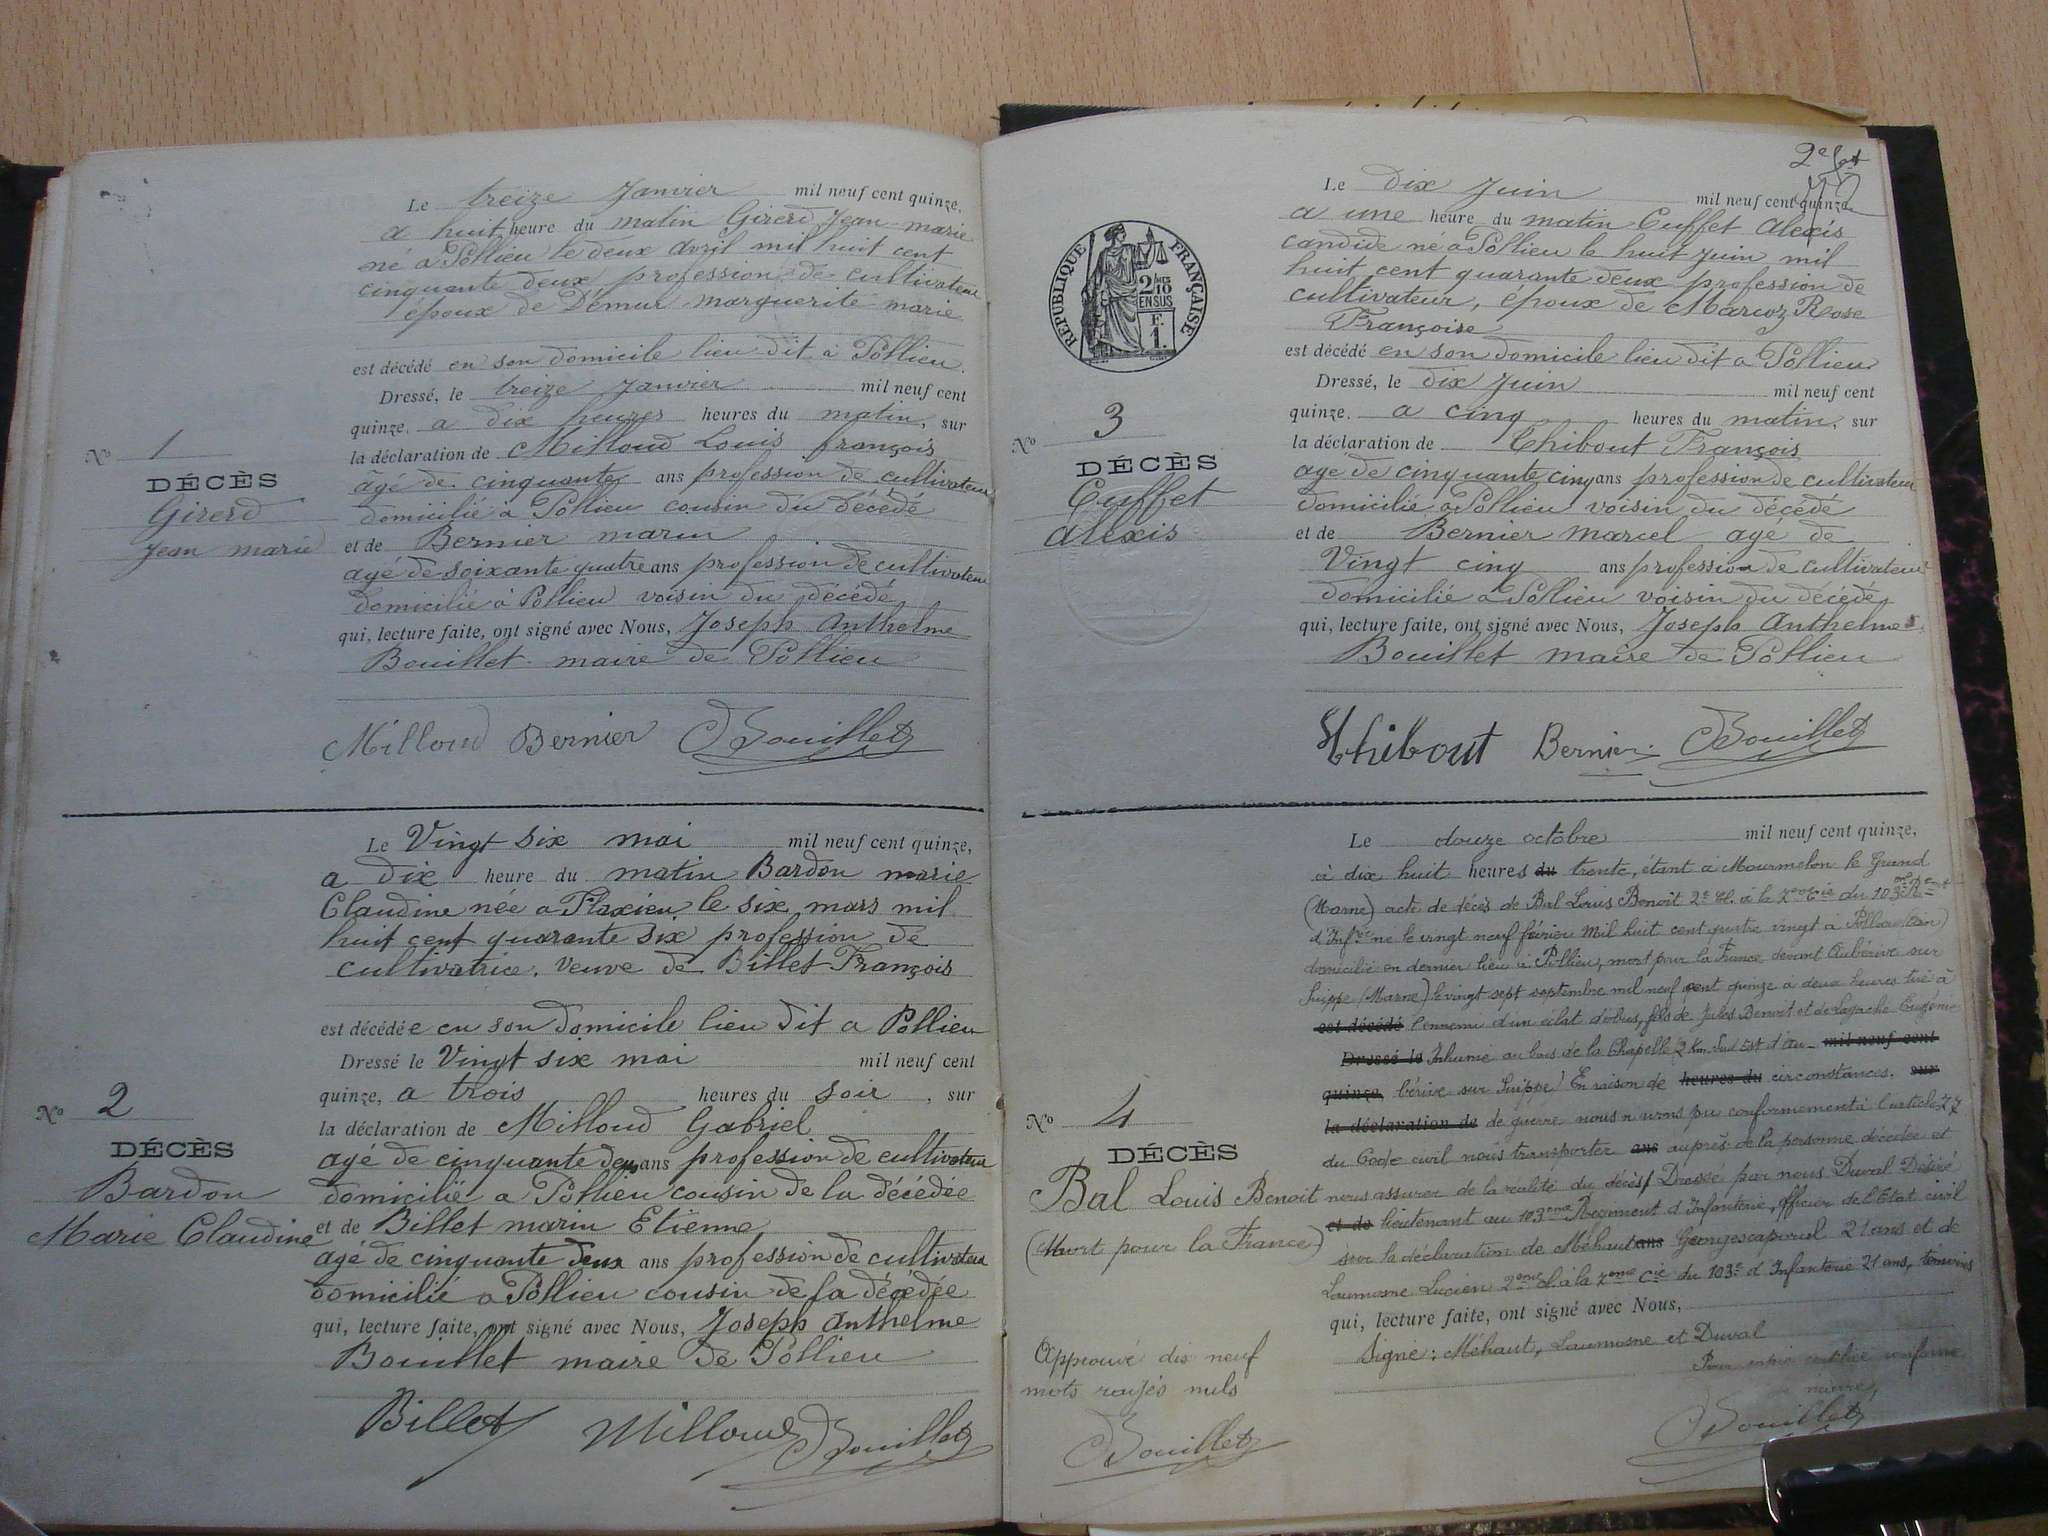 Le treize Janvier mil neuf cent quinze,
a huit heure du matin Girerd Jean marie
né à Pollieu le deux avril mil huit cent
cinquante deux profession de cultivateur
époux de Démur marguerite marie
est décédé en son domicile lieu dit à Pollieu
Dressé, le treize Janvier mil neuf cent
quinze, a dix heures heures du matin, sur
la déclaration de Milloud Louis françois
âgé de cinquante ans profession de cultivateur
domicilié à Pollieu cousin du décédé
et de Bernier marin
agé de soixante quatre ans profession de cultivateur
domicilié à Pollieu voisin du décédé
qui, lecture faite, ont signé avec Nous, Joseph Anthelme
Bouillet maire de Pollieu
Milloud Bernier Bouillet
No 1
DÉCÈS
Girerd
Jean marie
Le Vingt six mai mil neuf cent quinze,
a dix heure du matin Bardon marie
Claudine née a Flaxieu le six mars mil
huit cent quarante six profession de
cultivatrice, veuve de Billet François
est décédée en son domicile lieu dit a Pollieu
Dressé le Vingt six mai mil neuf cent
quinze, a trois heures du soir, sur
la déclaration de Milloud Gabriel
agé de cinquante deux ans profession de cultivateur
domicilié a Pollieu cousin de la décédée
et de Billet marin Etienne
agé de cinquante deux ans profession de cultivateur
domicilié a Pollieu cousin de la décédée
qui, lecture faite, ont signé avec Nous, Joseph Anthelme
Bouillet maire de Pollieu
Billet Milloud Bouillet
No 2
DÉCÈS
Bardon
Marie Claudine
2e
RÉPUBLIQUE FRANÇAISE
2
10
EN SUS
F.
1.
Le dix Juin mil neuf cent quinze
a une heure du matin Cuffet Alexis
candide né à Pollieu le huit Juin mil
huit cent quarante deux profession de
cultivateur, époux de Marcoz Rose
Françoise
est décédé en son domicile lieu dit a Pollieu
Dressé, le dix Juin mil neuf cent
quinze, a cinq heures du matin, sur
la déclaration de Thibout François
agé de cinquante cinq ans profession de cultivateur
domicilié à Pollieu voisin du décédé
et de Bernier marcel agé de
Vingt cinq ans profession de cultivateur
domicilié à Pollieu voisin du décédé
qui, lecture faite, ont signé avec Nous, Joseph Anthelme
Bouillet maire de Pollieu
Thibout Bernier Bouillet
No 3
DÉCÈS
Cuffet
Alexis
Le douze octobre mil neuf cent quinze,
à dix huit heures du trente, étant à Mourmelon le Grand
(Marne) acte de décès de Bal Louis Benoit 2e cl. à la 7e Cie du 103e
d'Infrie né le vingt neuf février mil huit cent quatre vingt à Pollieu (Ain)
domicilié en dernier lieu à Pollieu, mort pour la France devant Aubérive sur
Suippe (Marne) le vingt sept septembre mil neuf cent quinze à deux heures tué à
est décédé l'ennemi d'un éclat d'obus, fils de Jules Benoit et de Lagache Eugénie
Dressé le Inhumé au bois de la Chapelle 2 Km. Sud Est d'Au- mil neuf cent
quinze, bérive sur Suippe! En raison de heures du circonstances. sur
la déclaration de de guerre nous n'avons pu conformément à l'article 77
du Code civil nous transporter ans auprès de la personne décédée et
nous assurer de la réalité du décès/ Dressé par nous Duval Désiré
et de lieutenant au 103eme Régiment d'Infanterie, officier de l'Etat civil
sur la déclaration de Méhaut ans Georges caporal 21 ans et de
Laumosne Lucien 2eme cl. à la 7eme Cie du 103e d'Infanterie 21 ans, témoins
qui, lecture faite, ont signé avec Nous,
Signé: Méhaut, Laumosne et Duval
Pour copie certifiée conforme
maire,
Bouillet
No 4
DÉCÈS
Bal Louis Benoit
(Mort pour la France)
Approuvé dix neuf
mots rayés nuls
Bouillet